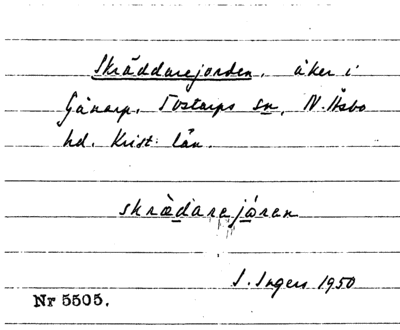 Skräddarejorden, åker i
Gånarp, Tostarps sn, N. Åsbo
hd. Krist. län.
skrädarejåren
S. Ingers 1950
Nr 5505.